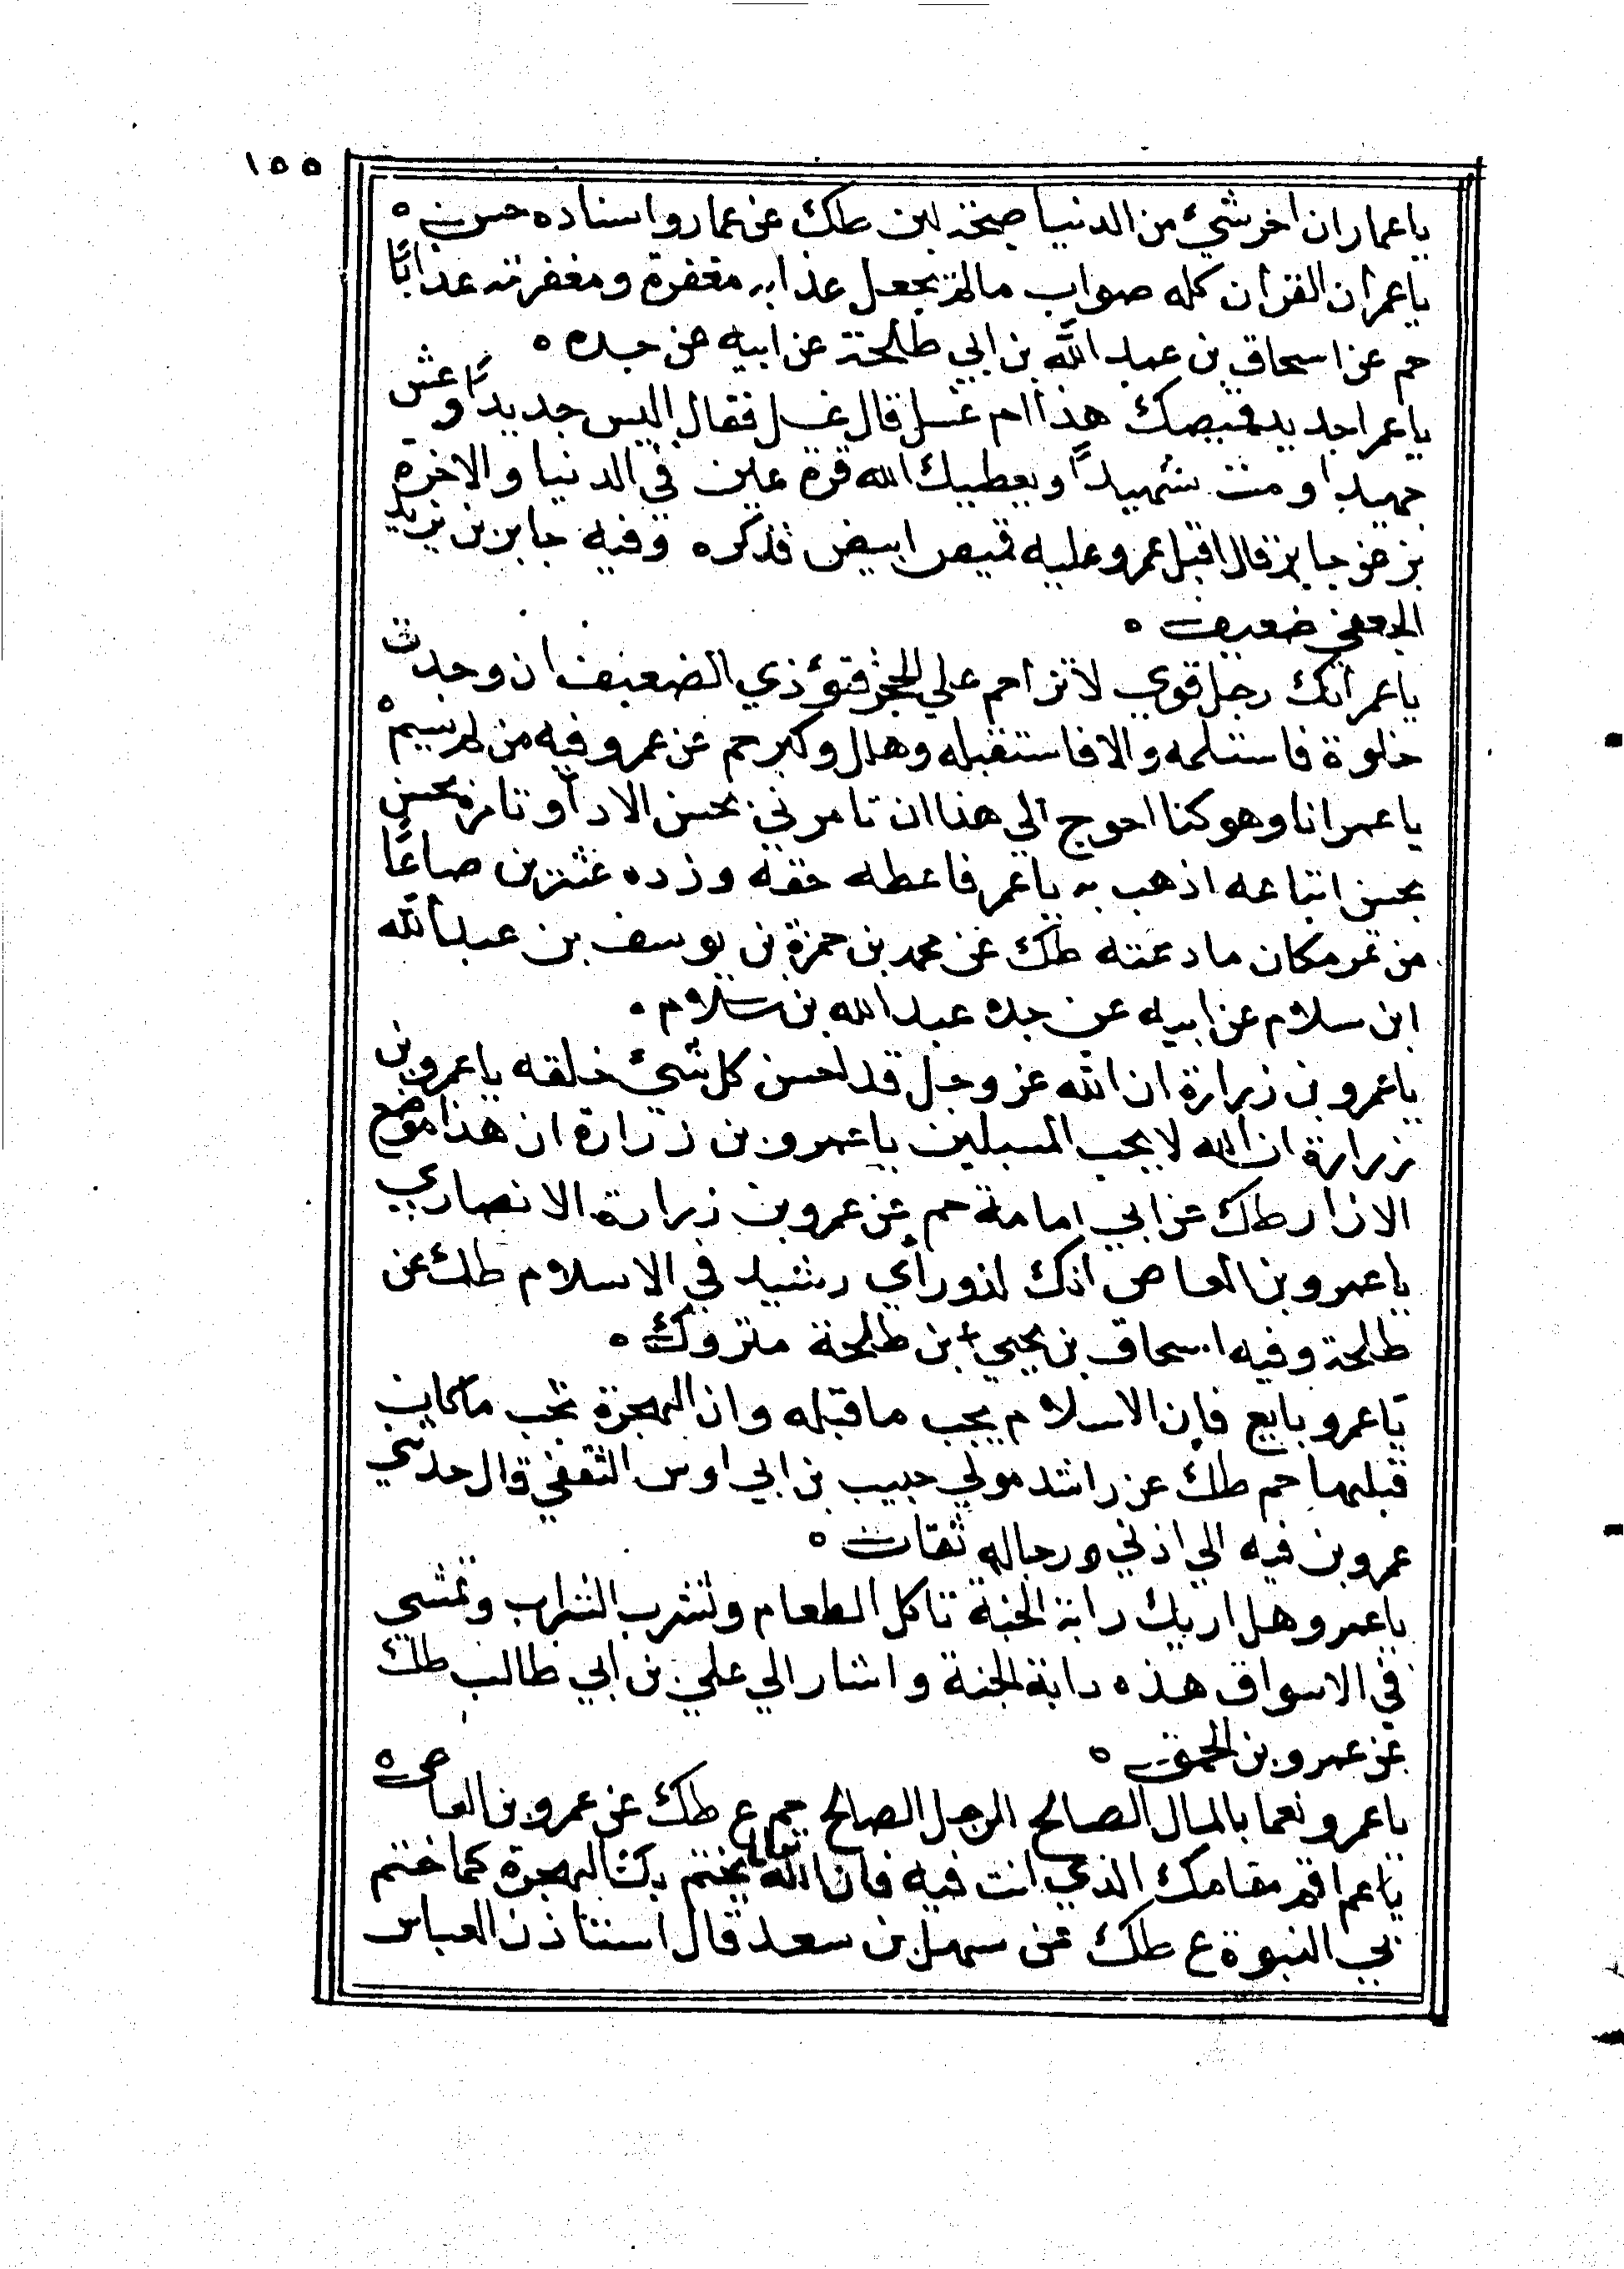 ١٥٥
ياعمار ان اخر شيء من الدنيا ضيحة لبن طك عن عمار واسناده حسن ه
ياعمر ان القران كله صواب مالم تجعل عذابه مغفرة ومغفرته عذابًا
حم عن اسحاق بن عبد الله بن ابي طلحة عن ابيه عن جده ه
ياعمر اجديد قميصك هذا ام غسيل قال غسيل فقال البس جديدًا وعش
حميدا ومت شهيدًا ويعطيك الله قرة عين في الدنيا والاخرة
بز عن جابر قال اقبل عمر وعليه قميص ابيض فذكره وفيه جابر بن يزيد
الجعفي ضعيف ه
ياعمر انك رجل قوي لا تزاحم علي الحجر فتؤذي الضعيف ان وجدت
خلوة فاستلمه والا فاستقبله وهلل وكبر حم عن عمر وفيه من لم يسم ه
ياعمر انا وهو كنا احوج الي هذا ان تامرني بحسن الاداء وتامره بحسن
بحسن اتباعه اذهب به ياعمر فاعطه حقه وزده عشرين صاعًا
من تمر مكان ما دعته طك عن محمد بن حمزة بن يوسف بن عبد الله
ابن سلام عن ابيه عن جده عبد الله بن سلام ه
ياعمرو بن زرارة ان الله عز وجل قد احسن كل شيء خلقه ياعمرو بن
زرارة ان الله لا يحب المسبلين ياعمرو بن زرارة ان هذا موضع
الازار طك عن ابي امامة حم عن عمرو بن زرارة الانصاري
ياعمرو بن العاص انك لذو راي رشيد في الاسلام طك عن
طلحة وفيه اسحاق بن يحيى بن طلحة متروك ه
ياعمرو بايع فان الاسلام يجب ما قبله وان الهجرة تجب ما كان
قبلها حم طك عن راشد مولي حبيب بن ابي اوس الثقفي قال حدثني
عمرو بن فيه الي اذني ورجاله ثقات ه
ياعمرو هل اريك دابة الجنة تاكل الطعام وتشرب الشراب وتمشى
في الاسواق هذه دابة الجنة واشار الي علي بن ابي طالب طك
عن عمرو بن الحمق ه
ياعمرو نعما بالمال الصالح الرجل الصالح حم ع طك عن عمرو بن العاص ه
ياعم اقم مقامك الذي انت فيه فان الله تعالى يختم بك الهجرة كما ختم
بي النبوة ع طك عن سهل بن سعد قال استاذن العباس